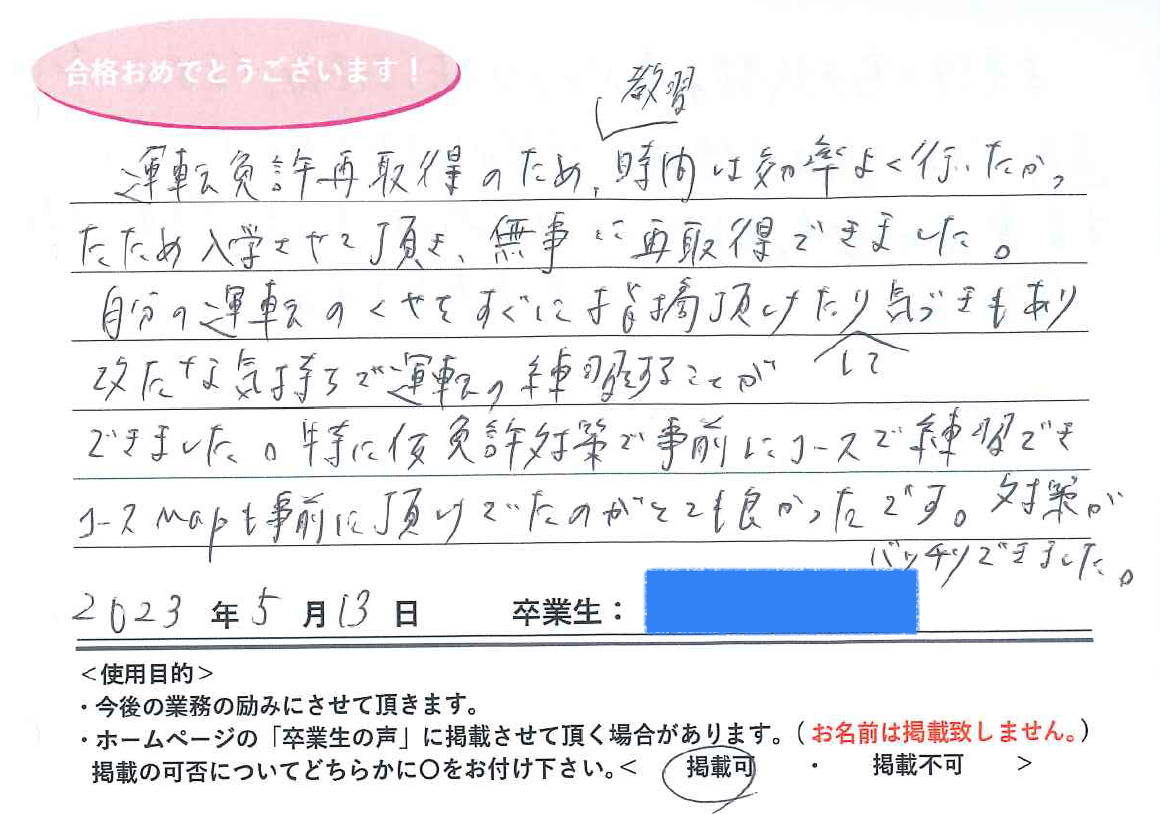 合格おめでとうございます！
教習
運転免許再取得のため、時間は効率よく行いたかっ
たため入学させて頂き、無事に再取得できました。
自分の運転のくせをすぐに指摘頂けたり気づきもあり
して
改たな気持ちで運転の練習することが
できました。特に仮免許対策で事前にコースで練習でき
コースmapも事前に頂けていたのがとても良かったです。対策が
バッチリできました。
2023年5月13日 卒業生：
＜使用目的＞
・今後の業務の励みにさせて頂きます。
・ホームページの「卒業生の声」に掲載させて頂く場合があります。（お名前は掲載致しません。）
掲載の可否についてどちらかに〇をお付け下さい。＜ 掲載可 ・ 掲載不可 ＞